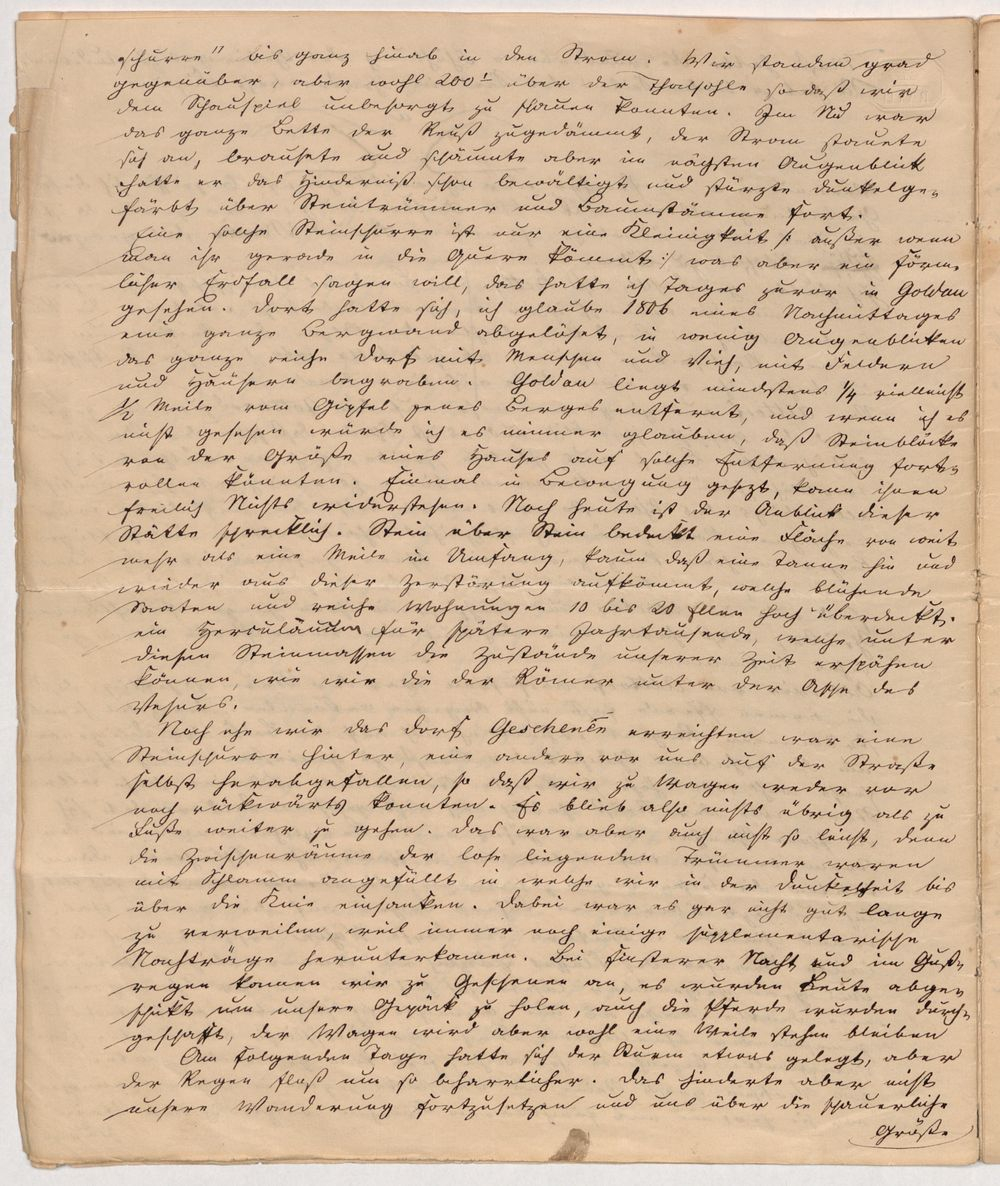 schurre" bis ganz hinab in den Strom. Wir standen grad
gegenüber, aber wohl 200' über der Thalsohle so daß wir
dem Schauspiel unbesorgt zu schauen konnten. Im Nu war
das ganze Bette der Reuß zugedämmt, der Strom staute
sich an, brausete und schäumte aber im nächsten Augenblick
hatte er das Hinderniß schon bewältigt und stürzte dunkelge-
färbt über Steintrümmer und Baumstämme fort.
Eine solche Steinschurre ist nur eine Kleinigkeit /: außer wenn
man ihr gerade in die Quere kömmt :/ was aber ein förm-
licher Erdfall sagen will, das hatte ich Tages zuvor in Goldau
gesehen. Dort hatte sich, ich glaube 1806 eines Nachmittages
eine ganze Bergwand abgelöset, in wenig Augenblicken
das ganze reiche Dorf mit Menschen und Vieh, mit Feldern
und Häusern begraben. Goldau liegt mindestens 1/4 vielleicht
1/2 Meile vom Gipfel jenes Berges entfernt, und wenn ich es
nicht gesehen würde ich es nimmer glauben, daß Steinblöcke
von der Größe eines Hauses auf solche Entfernung fort-
rollen könnten. Einmal in Bewegung gesezt, kann ihnen
freilich Nichts widerstehen. Noch heute ist der Anblick dieser
Stätte schrecklich. Stein über Stein bedeckt eine Fläche von weit
mehr als eine Meile im Umfang, kaum daß eine Tanne hin und
wieder aus dieser Zerstörung aufkömmt, welche blühende
Saaten und reiche Wohnungen 10 bis 20 Ellen hoch überdeckt.
ein Herculäum für spätere Jahrtausende, welche unter
diesen Steinmassen die Zustände unserer Zeit erspähen
können, wie wir die der Römer unter der Asche des
Vesuvs.
Noch ehe wir das Dorf Geschenen erreichten war eine
Steinschurre hinter, eine andere vor uns auf der Straße
selbst herabgefallen, so daß wir zu Wagen weder vor
noch rückwärts konnten. Es blieb also nichts übrig als zu
Fuße weiter zu gehen. Das war aber auch nicht so leicht, denn
die Zwischenräume der lose liegenden Trümmer waren
mit Schlamm angefüllt in welche wir in der Dunkelheit bis
über die Knie einsanken. Dabei war es gar nicht gut lange
zu verweilen, weil immer noch einige supplementarische
Nachträge herunterkamen. Bei finsterer Nacht und im Guß-
regen kamen wir zu Geschenen an, es wurden Leute abge-
schickt um unsere Gepäck zu holen, auch die Pferde wurden durch-
geschafft, der Wagen wird aber wohl eine Weile stehen bleiben
Am folgenden Tage hatte sich der Sturm etwas gelegt, aber
der Regen floß um so beharrlicher. Das hinderte aber nicht
unsere Wanderung fortzusetzen und uns über die schauerliche
Größe